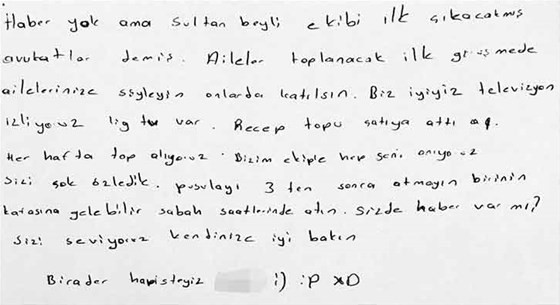 Haber yok ama sultan beyli ekibi ilk çıkacakmış
avukatlar demiş. Aileler toplanacak ilk görüşmede
ailelerinize söyleyin onlarda katılsın. Biz iyiyiz televizyon
izliyoruz lig tv var. Recep topu satıya attı
Her hafta top alıyoruz. Bizim ekiple hep seni anıyoruz
sizi çok özledik. pusulayı 3 ten sonra atmayın birinin
kafasına gelebilir sabah saatlerinde atın. Sizde haber var mı?
Sizi seviyoruz kendinize iyi bakın
Birader hapisteyiz :) :P xD